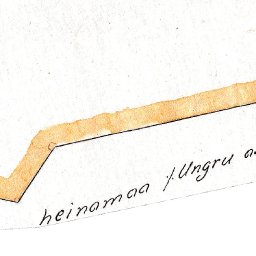 heinamaa /Ungru a